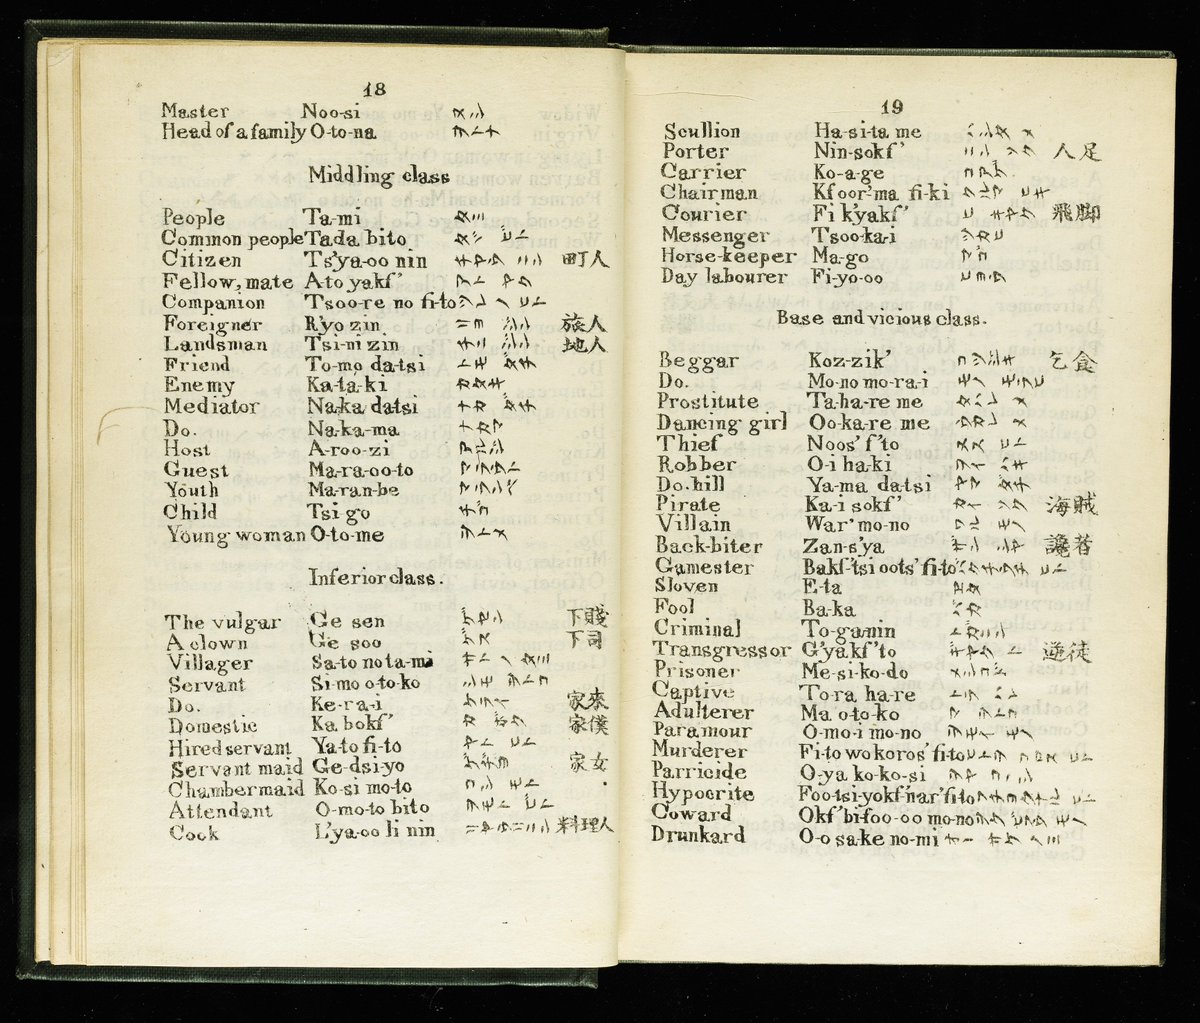 18
Master Noo-si ヌシ
Head of a family O-to-na ヲトナ
Middling class
People Ta-mi タミ
Common people Tada bito タダ ビト
Citizen Ts'ya-oo nin チヤウ ニン 町人
Fellow, mate A-to yakf' アト ヤク
Companion Tsoo-re no fi-to ツレ ノ ヒト
Foreigner R'yo zin リヨ ジン 旅人
Landsman Tsi-ni zin チニ ジン 地人
Friend To-mo da-tsi トモ ダチ
Enemy Ka-ta-ki カタキ
Mediator Na-ka datsi ナカ ダチ
Do. Na-ka-ma ナカマ
Host A-roo-zi アルジ
Guest Ma-ra-oo-to マラウト
Youth Ma-ran-be マランベ
Child Tsi go チゴ
Young woman O-to-me ヲトメ
Inferior class.
The vulgar Ge sen ゲセン 下賤
A clown Ge soo ゲス 下司
Villager Sa-to no ta-mi サト ノ タミ
Servant Si-mo o-to-ko シモ ヲトコ
Do. Ke-ra-i ケライ 家來
Domestic Ka bokf' カ ボク 家僕
Hired servant Ya-to fi-to ヤト ヒト
Servant maid Ge-dsi-yo ゲヂヨ 家女
Chambermaid Ko-si mo-to コシ モト
Attendant O-mo-to bito ヲモト ビト
Cock L'ya-oo li nin 料理人
19
Scullion Ha-si-ta me ハシタ メ
Porter Nin-sokf' ニン ソク 人足
Carrier Ko-a-ge コアゲ
Chairman Kfoor'-ma fi-ki クルマ ヒキ
Courier Fi k'yakf' ヒ キヤク 飛脚
Messenger Tsoo-ka-i ツカヒ
Horse-keeper Ma-go マゴ
Day labourer Fi-yo-oo ヒヨウ
Base and vicious class.
Beggar Koz-zik' コツジキ 乞食
Do. Mo-no mo-ra-i モノ モラヒ
Prostitute Ta-ha-re me タハレ メ
Dancing girl Oo-ka-re me ウカレ メ
Thief Noos' f'to ヌス ヒト
Robber O-i ha-ki ヲイ ハキ
Do. hill Ya-ma da-tsi ヤマ ダチ
Pirate Ka-i sokf' カイ ゾク 海賊
Villain War' mo-no ワル モノ
Back-biter Zan-s'ya ザン シヤ 讒者
Gamester Bakf-tsi oots' fi-to バクチ ウチ ヒト
Sloven E-ta エタ
Fool Ba-ka バカ
Criminal To-ga-nin トガニン
Transgressor G'yakf' to ギヤク ト 逆徒
Prisoner Me-si-ko-do メシコド
Captive To-ra ha-re トラ ハレ
Adulterer Ma o-to-ko マ ヲトコ
Paramour O-mo-i mo-no ヲモイ モノ
Murderer Fi-to wo koros' fi-to ヒト ヲ コロス ヒト
Parricide O-ya ko-ko-si
Hypocrite Foo-tsi-yokf'-nar' fi-to
Coward Okf' bi-foo-oo mo-no
Drunkard O-o sa-ke no-mi オー サケ ノミ